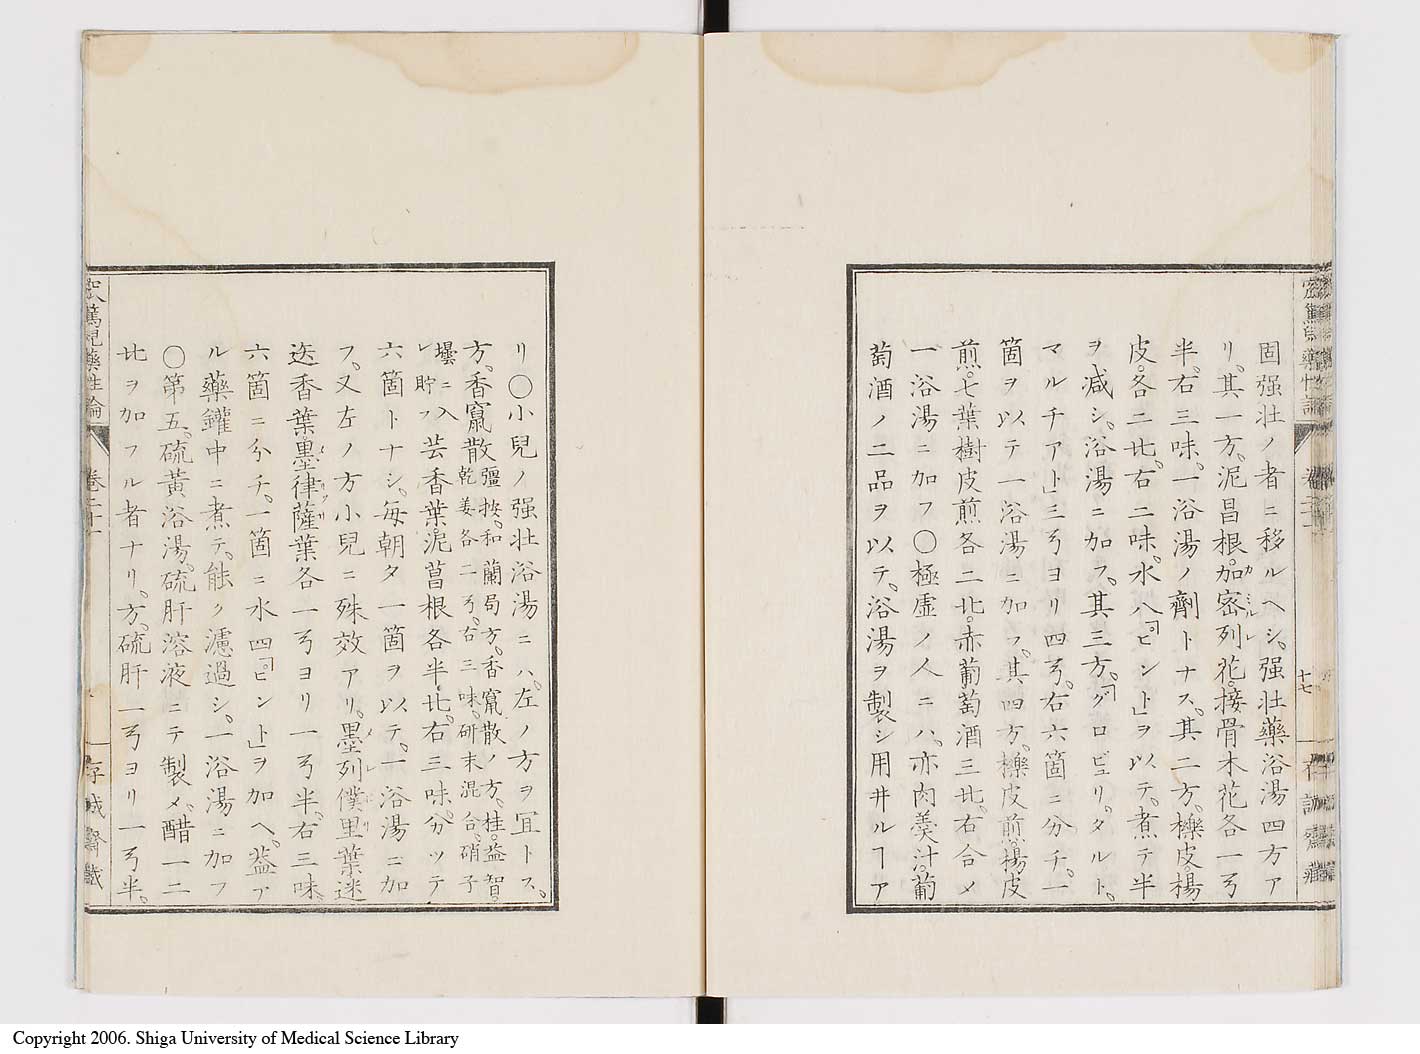 固强壮ノ者ニ移ルヘシ。强壮藥浴湯四方ア
リ。其一方。泥昌根。加密列花。接骨木花各一弓
カミルレ
半。右三味。一浴湯ノ劑トナス。其二方。櫟皮。楊
皮。各二比。右二味。水八「ピント」ヲ以テ。煮テ半
ヲ減シ。浴湯ニ加フ。其三方。「グロビュリ。タルト。
マルチアト」三弓ヨリ四弓。右六箇ニ分チ。一
箇ヲ以テ一浴湯ニ加フ。其四方。櫟皮煎。楊皮
煎。七葉樹皮煎各二比。赤葡萄酒三比。右合メ
一浴湯ニ加フ〇極虚ノ人ニハ。亦肉羮汁。葡
萄酒ノ二品ヲ以テ。浴湯ヲ製シ用井ルヿア
十七
リ〇小兒ノ强壮浴湯ニハ。左ノ方ヲ宜トス。
方。香竄散彊按。和蘭局方。香竄散ノ方。桂。益智。
乾姜各二弓。右三味。研末混合。硝子
壜ニ入
レ貯フ芸香葉。泥菖根各半比。右三味。分ッテ
六箇トナシ。毎朝夕一箇ヲ以テ。一浴湯ニ加
フ。又左ノ方小兒ニ殊效アリ。墨列僕里葉。迷
迭香葉。墨律薩葉各一弓ヨリ一弓半。右三味
六箇ニ分チ。一箇ニ水四「ピント」ヲ加ヘ。益ア
ル藥鑵中ニ煮テ。能ク濾過シ。一浴湯ニ加フ
〇第五。硫黄浴湯。硫肝溶液ニテ製メ。醋一二
比ヲ加フル者ナリ。方。硫肝一弓ヨリ一弓半。
篤兒藥性論
卷二十